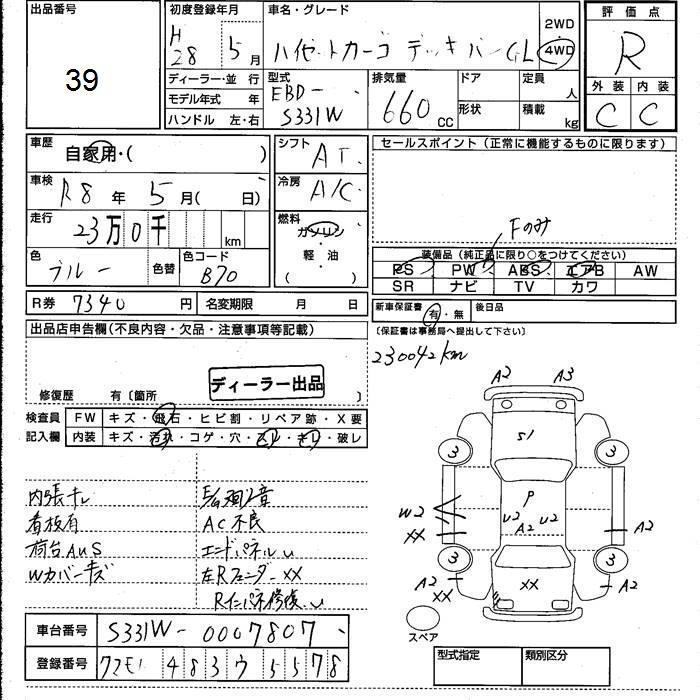 出品番号
39
初度登録年月
H28 5月
車名・グレード
ハイゼットカーゴ デッキバンGL
2WD
4WD
評価点
R
外装 内装
C C
ディーラー・並行
モデル年式 年
ハンドル 左・右
型式
EBD-
S331W
排気量
660 cc
ドア
形状
定員
人
積載
kg
車歴
自家用・( )
車検
R8年 5月( 日)
走行
23万0千 km
色
ブルー
色替
色コード
B70
シフト
AT
冷房
A/C
燃料
ガソリン
軽・油
( )
R券 7340円
名変期限 月 日
セールスポイント (正常に機能するものに限ります)
Fのみ
装備品 (純正品に限り○をつけてください)
PS PW ABS エアB AW
SR ナビ TV カワ
新車保証書 有・無
後日品
(保証書は事務局へ提出して下さい)
230042km
出品店申告欄 (不良内容・欠品・注意事項等記載)
修復歴 有〔箇所 〕
ディーラー出品
検査員
記入欄
FW キズ・飛石・ヒビ割・リペア跡・X要
内装 キズ・汚れ・コゲ・穴・スレ・キレ・破レ
内張キレ
看板有
荷台AUS
Wカバーキズ
AC不良
エンドパネルU
左Rフェンダー XX
Rインパネ修復.U
A2 A3
S1
3 3
P
W2
XX
U2 A2 U2
A2
3 3
A2
XX
XX
A2
スペア
車台番号 S331W-0007807
登録番号
4 8 3 ウ 5 5 7 8
型式指定 類別区分